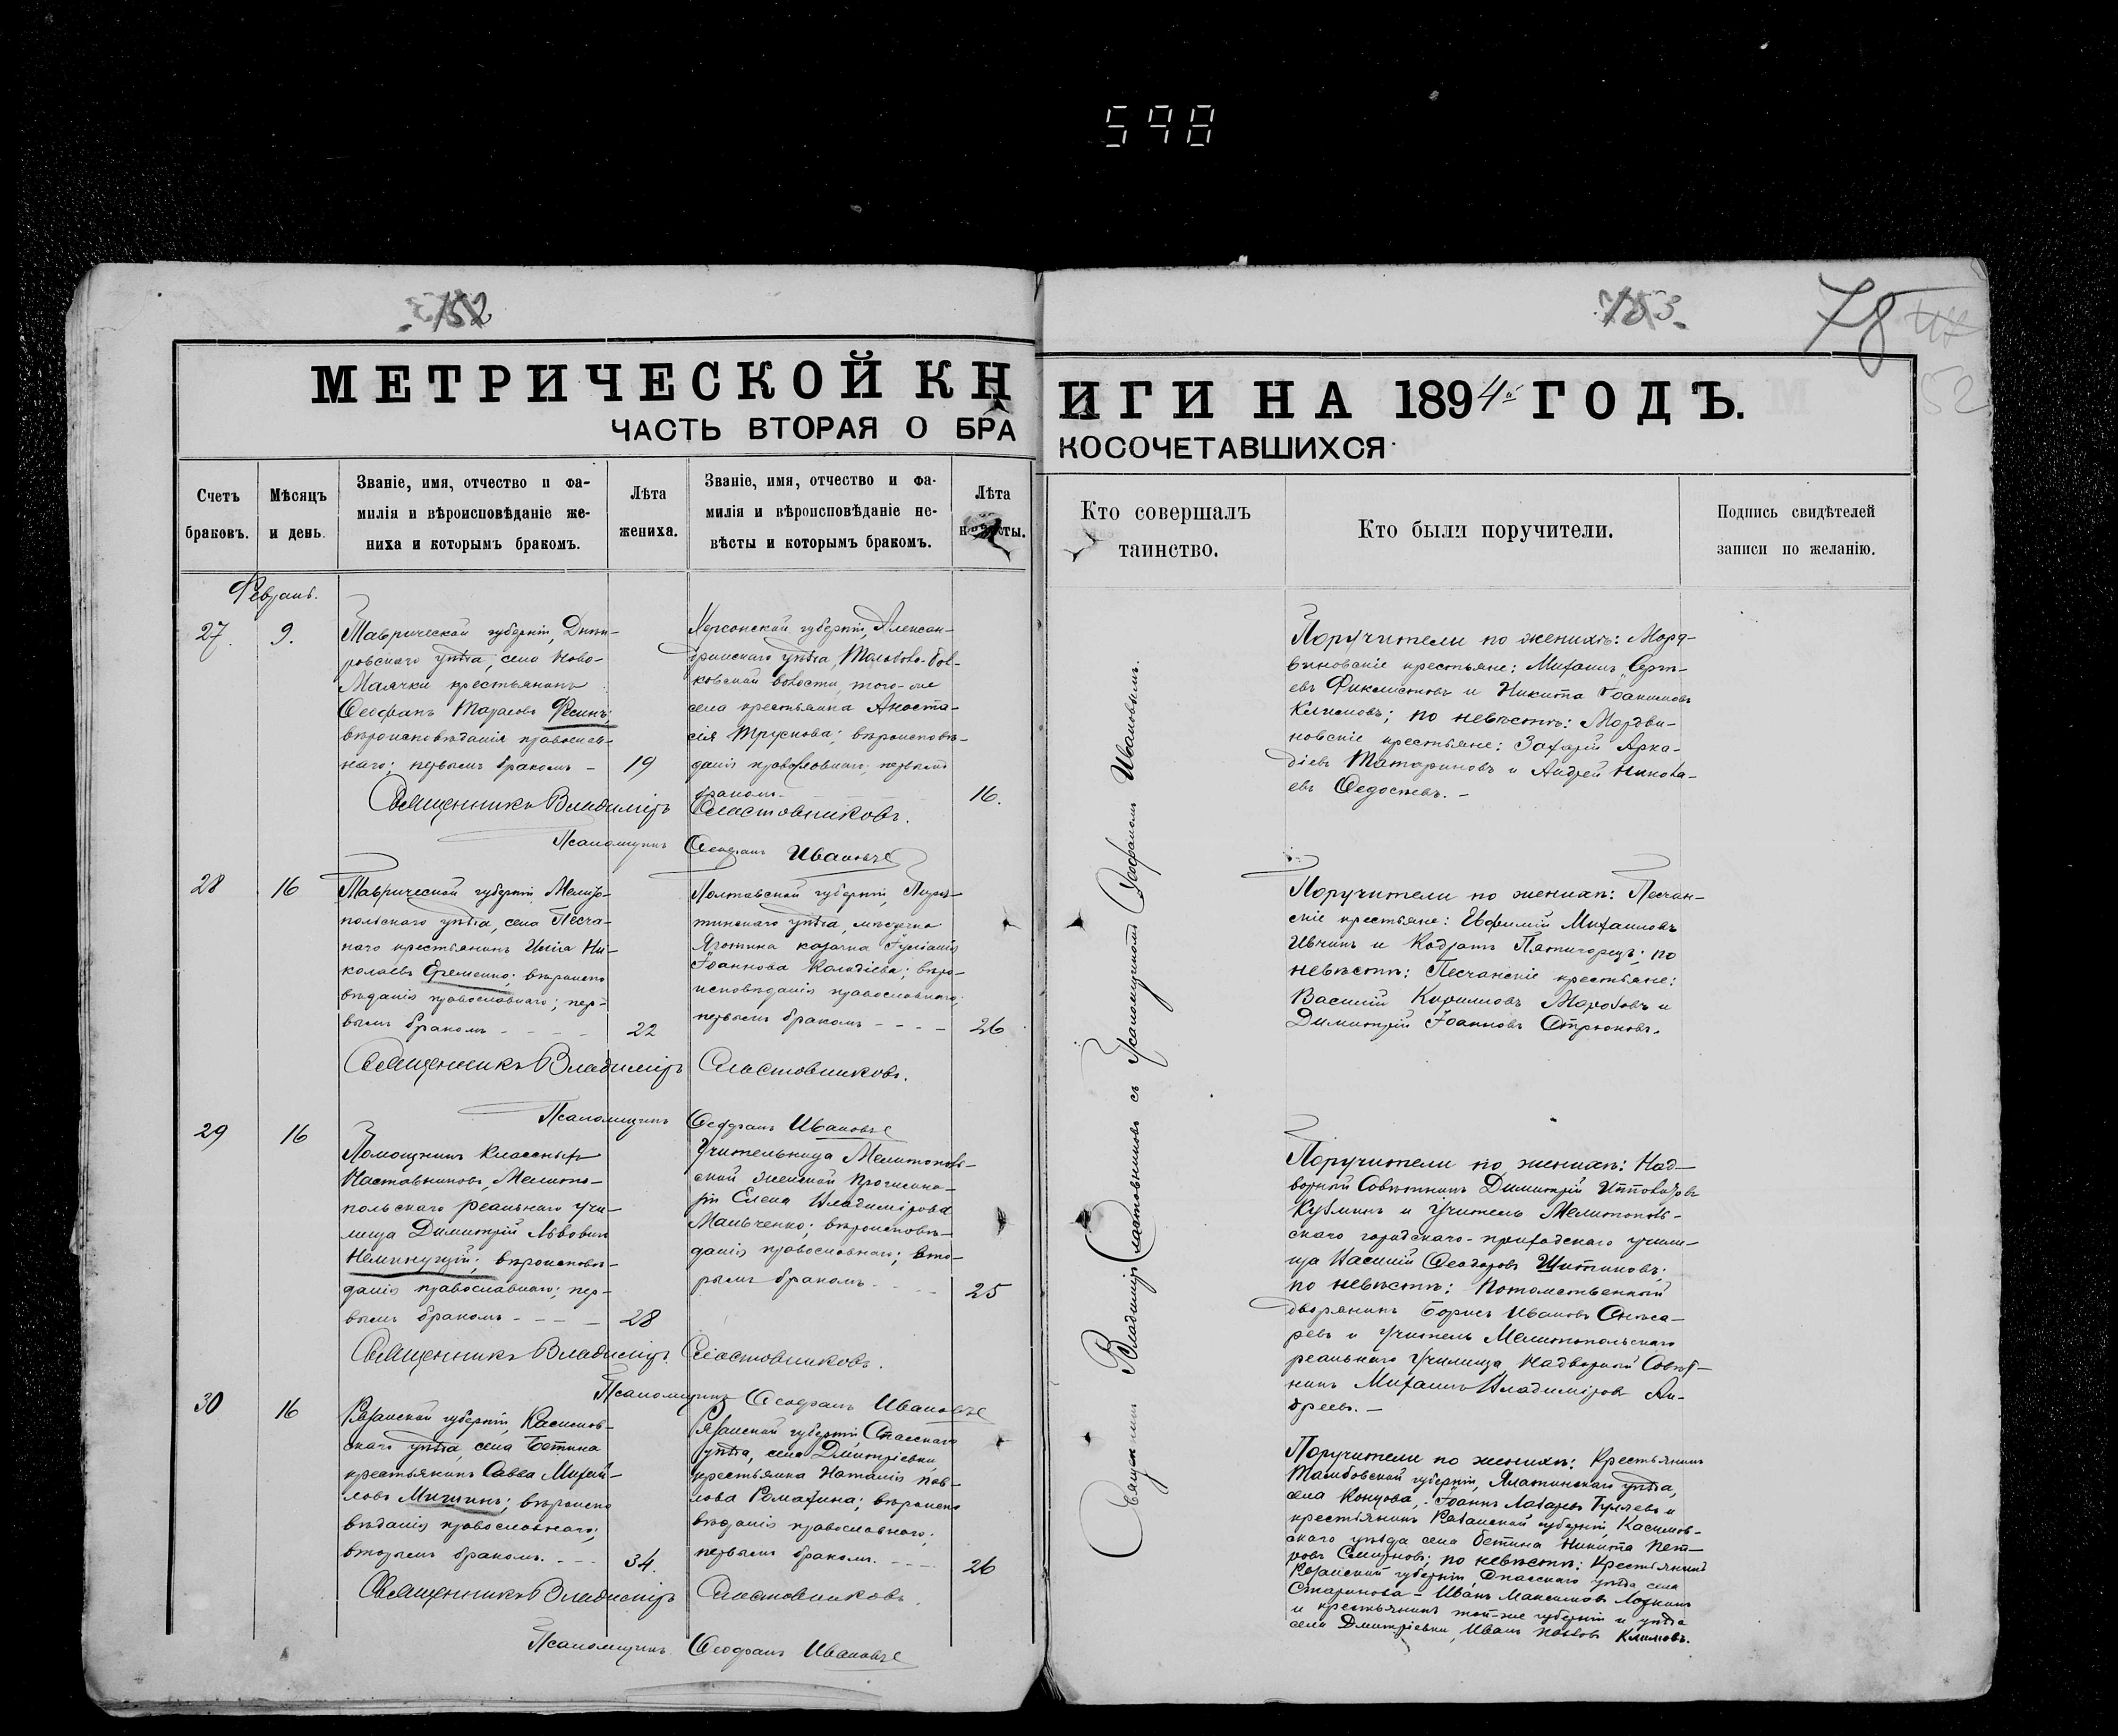 598
152
153
78
52
МЕТРИЧЕСКОЙ КНИГИ НА 1894й ГОДЪ.
ЧАСТЬ ВТОРАЯ О БРАКОСОЧЕТАВШИХСЯ
Счетъ браковъ.
Мѣсяцъ и день.
Званіе, имя, отчество и фа-
милія и вѣроисповѣданіе же-
ниха и которымъ бракомъ.
Лѣта жениха.
Званіе, имя, отчество и фа-
милія и вѣроисповѣданіе не-
вѣсты и которымъ бракомъ.
Лѣта невѣсты.
Кто совершалъ
таинство.
Кто были поручители.
Подпись свидѣтелей
записи по желанію.
Февраль.
27.
9.
Таврической губерніи, Днѣп-
ровскаго уѣзда, села Ново-
Маячки крестьянинъ
Ѳеофанъ Тарасовъ Фесинъ;
вѣроисповѣданія православ-
наго; первымъ бракомъ –
19
Херсонской губерніи, Алексан-
дрійскаго уѣзда,
волости, того-же
села крестьянка Анаста-
сія Трускова; вѣроисповѣ-
данія православнаго; первымъ
бракомъ
16.
Священникъ Владиміръ Сластовниковъ.
Псаломщикъ Ѳеофанъ Ивановъ
Поручители по женихѣ: Морд-
виновскіе крестьяне: Михаилъ Сергѣ-
евъ Фиклистовъ и Никита Іоакимовъ
Климовъ; по невѣстѣ: Мордви-
новскіе крестьяне: Захарій Арка-
діевъ Татариновъ и Андрей Никола-
евъ Ѳедосѣевъ. –
28
16
Таврической губерніи, Мелито-
польскаго уѣзда, села Песча-
наго крестьянинъ Илія Ни-
колаевъ Еременко; вѣроиспо
вѣданія православнаго; пер-
вымъ бракомъ - - - -
22
Полтавской губерніи, Пиря-
тинскаго уѣзда, мѣстечка
Яготина козачка Іуліанія
Іоаннова Коладіева; вѣро-
исповѣданія православнаго;
первымъ бракомъ - - - -
26
Священникъ Владиміръ Сластовниковъ.
Псаломщикъ Ѳеофанъ Ивановъ
Поручители по женихѣ: Песчан-
скіе крестьяне: Евфимій Михаиловъ
Ивчинъ и Кодратъ Пятигорецъ; по
невѣстѣ: Песчанскіе крестьяне:
Василій Кириловъ Моровъ и
Димитрій Іоанновъ Стрюковъ.
29
16
Помощникъ Классныхъ
Наставниковъ, Мелито-
польскаго реальнаго учи-
лища Димитрій Львовичъ
Неминущій; вѣроисповѣ-
данія православнаго; пер-
вымъ бракомъ - - - -
28
Учительница Мелитополь-
ской женской Прогимна-
зіи Елена Владимірова
Мальченко; вѣроисповѣ-
данія православнаго; вто-
рымъ бракомъ - -
25
Священникъ Владиміръ Сластовниковъ.
Псаломщикъ Ѳеофанъ Ивановъ
Поручители по женихѣ: Над-
ворный Совѣтникъ Димитрій Ипполитовъ
Кузминъ и Учитель Мелитополь-
скаго городскаго-приходскаго учили-
ща Василій Ѳеодоровъ Шитиковъ;
по невѣстѣ: потомственный
дворянинъ Борисъ Ивановъ Снѣса-
ревъ и Учитель Мелитопольскаго
реальнаго Училища Надворный Совѣт-
никъ Михаилъ Владиміровъ Ан-
дреевъ. –
30
16
Рязанской губерніи, Касимов-
скаго уѣзда, села Бетина
крестьянинъ Савва Михай-
ловъ Мишинъ; вѣроиспо
вѣданія православнаго;
вторымъ бракомъ. - - -
34.
Рязанской губерніи, Спасскаго
уѣзда, села Дмитріевки,
крестьянка Наталія Пав-
лова Ромахина; вѣроиспо
вѣданія православнаго;
первымъ бракомъ. - - -
26
Священникъ Владиміръ Сластовниковъ.
Псаломщикъ Ѳеофанъ Ивановъ
Поручители по женихѣ: Крестьянинъ
Тамбовской губерніи, Елатинскаго уѣзда,
села Концова, Іоаннъ Лазаревъ Гуляевъ и
крестьянинъ Рязанской губерніи, Касимов-
скаго уѣзда села Бетина Никита Пет-
ровъ Смирновъ; по невѣстѣ: Крестьянинъ
Рязанской губерніи Спасскаго уѣзда, села
Старикова – Иванъ Максимовъ Лочкинъ
и крестьянинъ той-же губерніи и уѣзда
села Дмитріевки, Иванъ Павловъ Климовъ.
Священникъ Владиміръ Сластовниковъ съ Псаломщикомъ Ѳеофаномъ Ивановымъ.